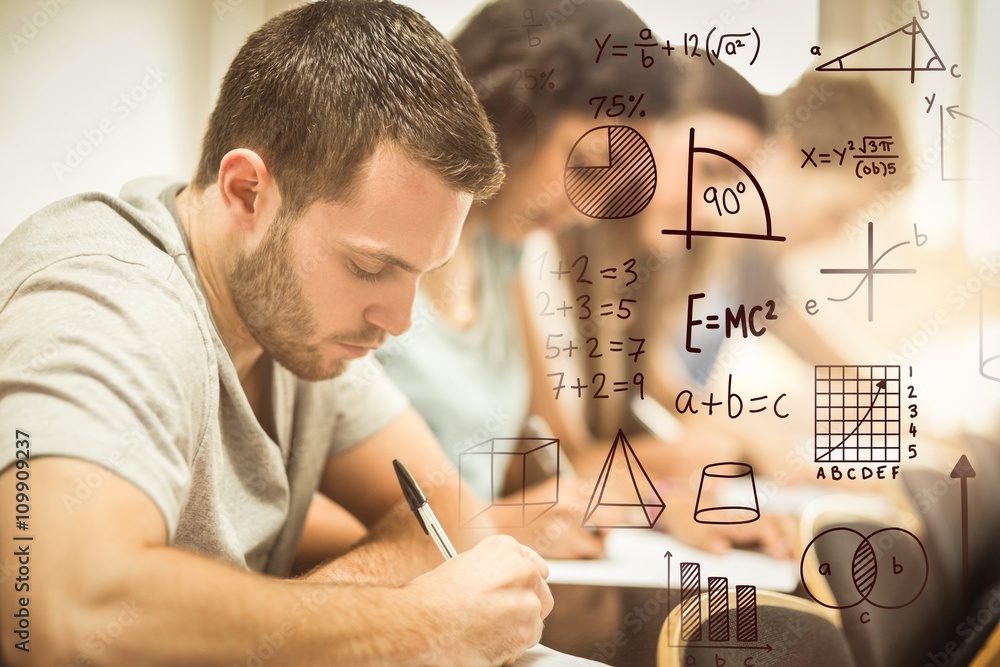 a/b
25%
Y = a/b + 12(√a²)
75%
a
b
c
Y
90°
X=Y² √3π/(ob)5
b
e
1+2=3
2+3=5
5+2=7
7+2=9
E=MC²
a+b=c
1
2
3
4
5
ABCDEF
a
b
c
a b c
Adobe Stock | #109909237
Adobe Stock